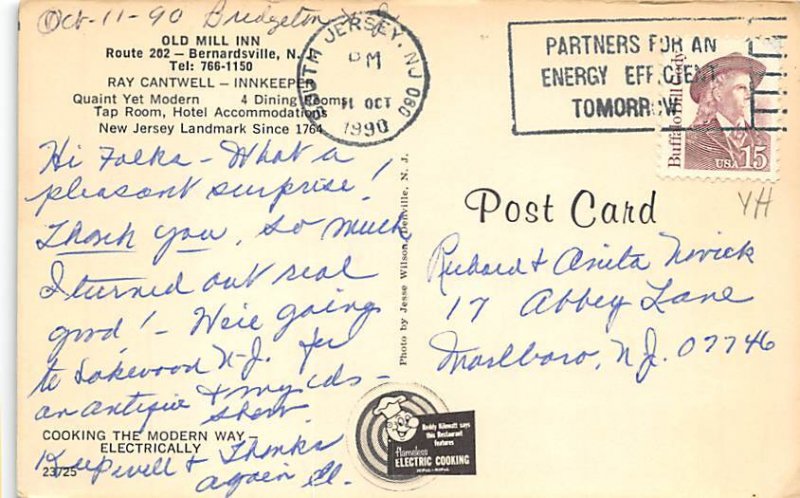 Oct-11-90 Bridgeton N.J.
OLD MILL INN
Route 202 — Bernardsville, N.J.
Tel: 766-1150
RAY CANTWELL — INNKEEPER
Quaint Yet Modern 4 Dining Rooms
Tap Room, Hotel Accommodations
New Jersey Landmark Since 1764
SOUTH JERSEY, NJ 080
PM
11 OCT
1990
PARTNERS FOR AN
ENERGY EFFICIENT
TOMORROW
Buffalo Bill Cody
USA 15
YH
Hi Folks - What a
pleasant surprise!
Thank you, so much
I turned out real
good! - We're going
to Lakewood N-J. for
an antique &
show
Photo by Jesse Wilson, Denville, N. J.
Post Card
Richard & Anita Novick
17 Abbey Lane
Marlboro, N.J. 07746
COOKING THE MODERN WAY —
ELECTRICALLY
Keep well & Thanks
again El.
23725
Reddy Kilowatt says
this Restaurant
features
flameless
ELECTRIC COOKING